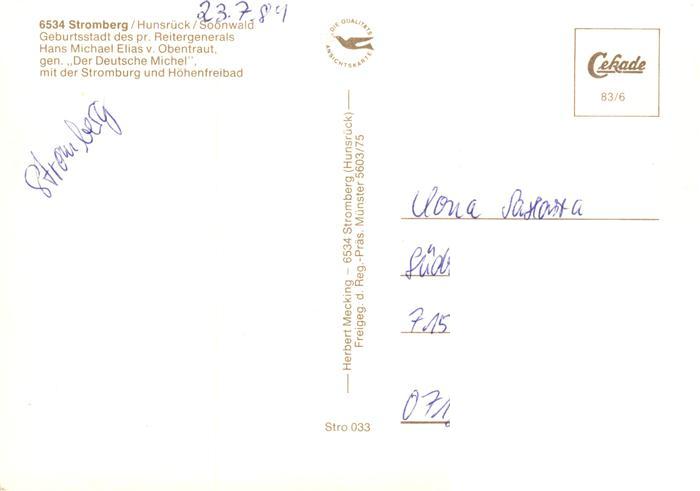 23.7.84
6534 Stromberg / Hunsrück / Soonwald
Geburtsstadt des pr. Reitergenerals
Hans Michael Elias v. Obentraut,
gen. „Der Deutsche Michel",
mit der Stromburg und Höhenfreibad
Stromberg
DIE QUALITÄTS
ANSICHTSKARTE
Cekade
83/6
Herbert Mecking – 6534 Stromberg (Hunsrück)
Freigeg. d. Reg.-Präs. Münster 5603/75
Stro 033
Ilona
Süd
715
071